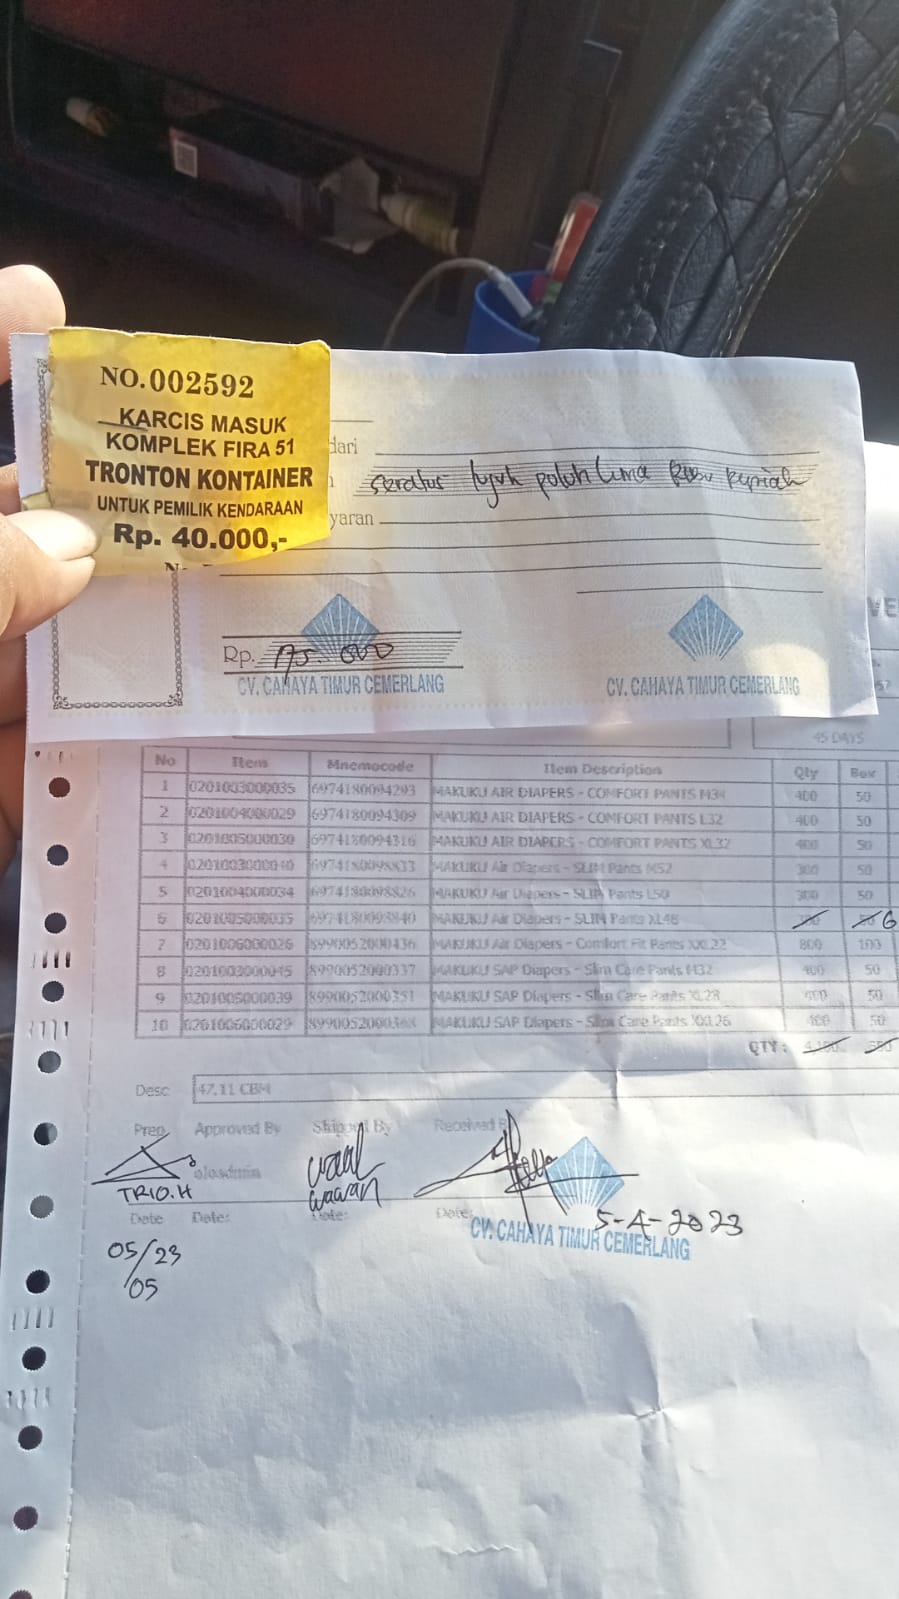 NO.002592
KARCIS MASUK
KOMPLEK FIRA 51
TRONTON KONTAINER
UNTUK PEMILIK KENDARAAN
Rp. 40.000,-
dari
seratus tujuh puluh lima ribu rupiah
yaran
Rp. 175.000
CV. CAHAYA TIMUR CEMERLANG
CV. CAHAYA TIMUR CEMERLANG
VE
45 DAYS
No Item Mnemocode Item Description Qty Box
1 0201003000035 6974180094293 MAKUKU AIR DIAPERS - COMFORT PANTS M34 400 50
2 0201004000029 6974180094309 MAKUKU AIR DIAPERS - COMFORT PANTS L32 400 50
3 0201005000030 6974180094316 MAKUKU AIR DIAPERS - COMFORT PANTS XL32 400 50
4 0201003000040 6974180098833 MAKUKU Air Diapers - SLIM Pants M52 300 50
5 0201004000034 6974180098826 MAKUKU Air Diapers - SLIM Pants L50 300 50
6 0201005000035 6974180098840 MAKUKU Air Diapers - SLIM Pants XL46 300 50 6
7 0201006000026 8990052000436 MAKUKU Air Diapers - Comfort Fit Pants XXL22 800 100
8 0201003000045 8990052000337 MAKUKU SAP Diapers - Slim Care Pants M32 400 50
9 0201005000039 8990052000351 MAKUKU SAP Diapers - Slim Care Pants XL28 400 50
10 0201006000029 8990052000368 MAKUKU SAP Diapers - Slim Care Pants XXL26 400 50
QTY : 4,100 550
Desc 47.11 CBM
Prep Approved By Shipped By Received By
TRIO.H wawan
Date Date: Date: Date:
5-4-2023
CV. CAHAYA TIMUR CEMERLANG
05/23
/05